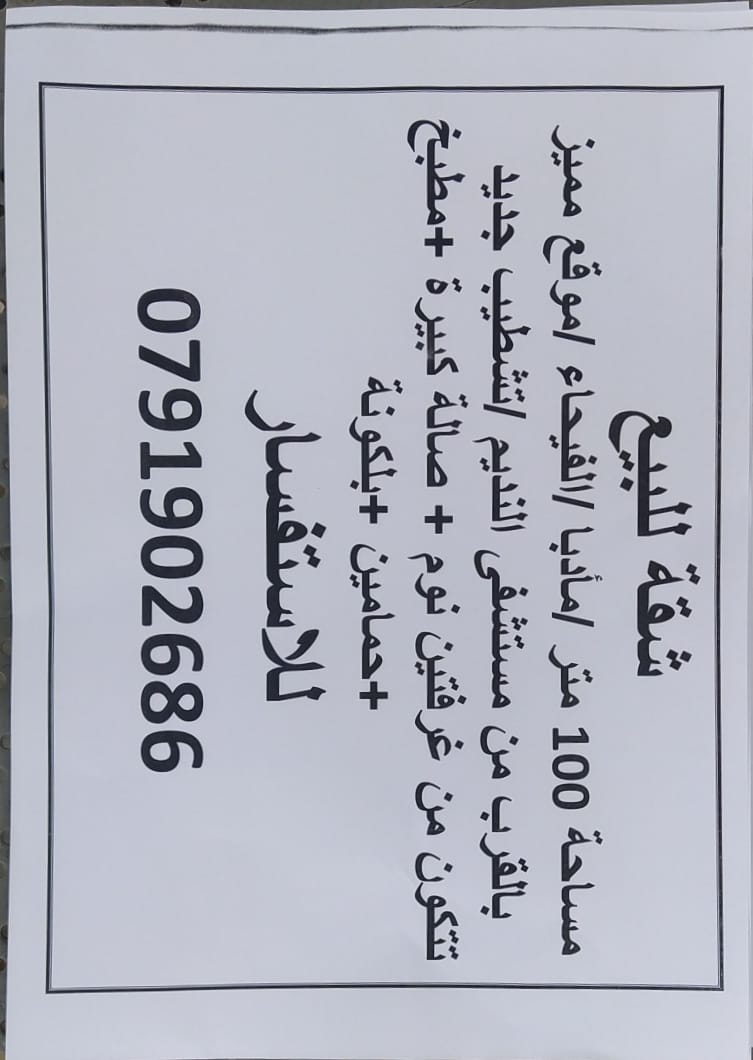 شقة للبيع
مساحة 100 متر /مأدبا /الفيحاء /موقع مميز
بالقرب من مستشفى النديم /تشطيب جديد
تتكون من غرفتين نوم + صالة كبيرة +مطبخ
+حمامين +بلكونة
للاستفسار
0791902686